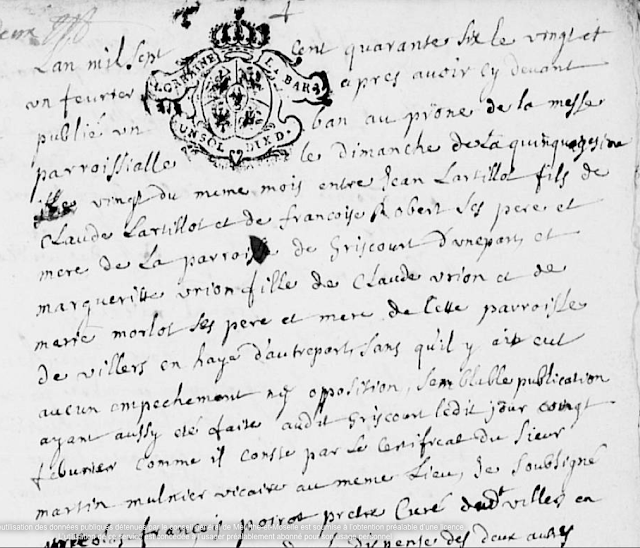 Lan mil sept cent quarante six le vingt et
un fevrier apres avoir cy devant
publié un ban au prône de la messe
parroissialle le dimanche de la quinquagesime
vingt du meme mois entre Jean Lartillot fils de
Claude Lartillot et de francoise Robert ses pere et
mere de la parroisse de Griscourt d'une part, et
margueritte vrion fille de Claude vrion et de
marie morlot ses pere et mere de Cette parroisse
de villers en haye d'autre part, sans qu'il y ait eut
aucun empechement ny opposition, semblable publication
ayant aussy eté faite audit Griscourt ledit jour vingt
fevrier comme il conste par le certificat du sieur
martin mulnier vicaire au meme lieu, Je soubsigné
françois poirot pretre Curé dudt villers en
dispense des deux autres
LORRAINE LA BAR
UN SOL DIE D.
utilisation des données publiques détenues par le conseil général de Meurthe-et-Moselle est soumise à l'obtention préalable d'une licence
L'utilisation de ce service est concédée à l'usager préalablement abonné pour son usage personnel